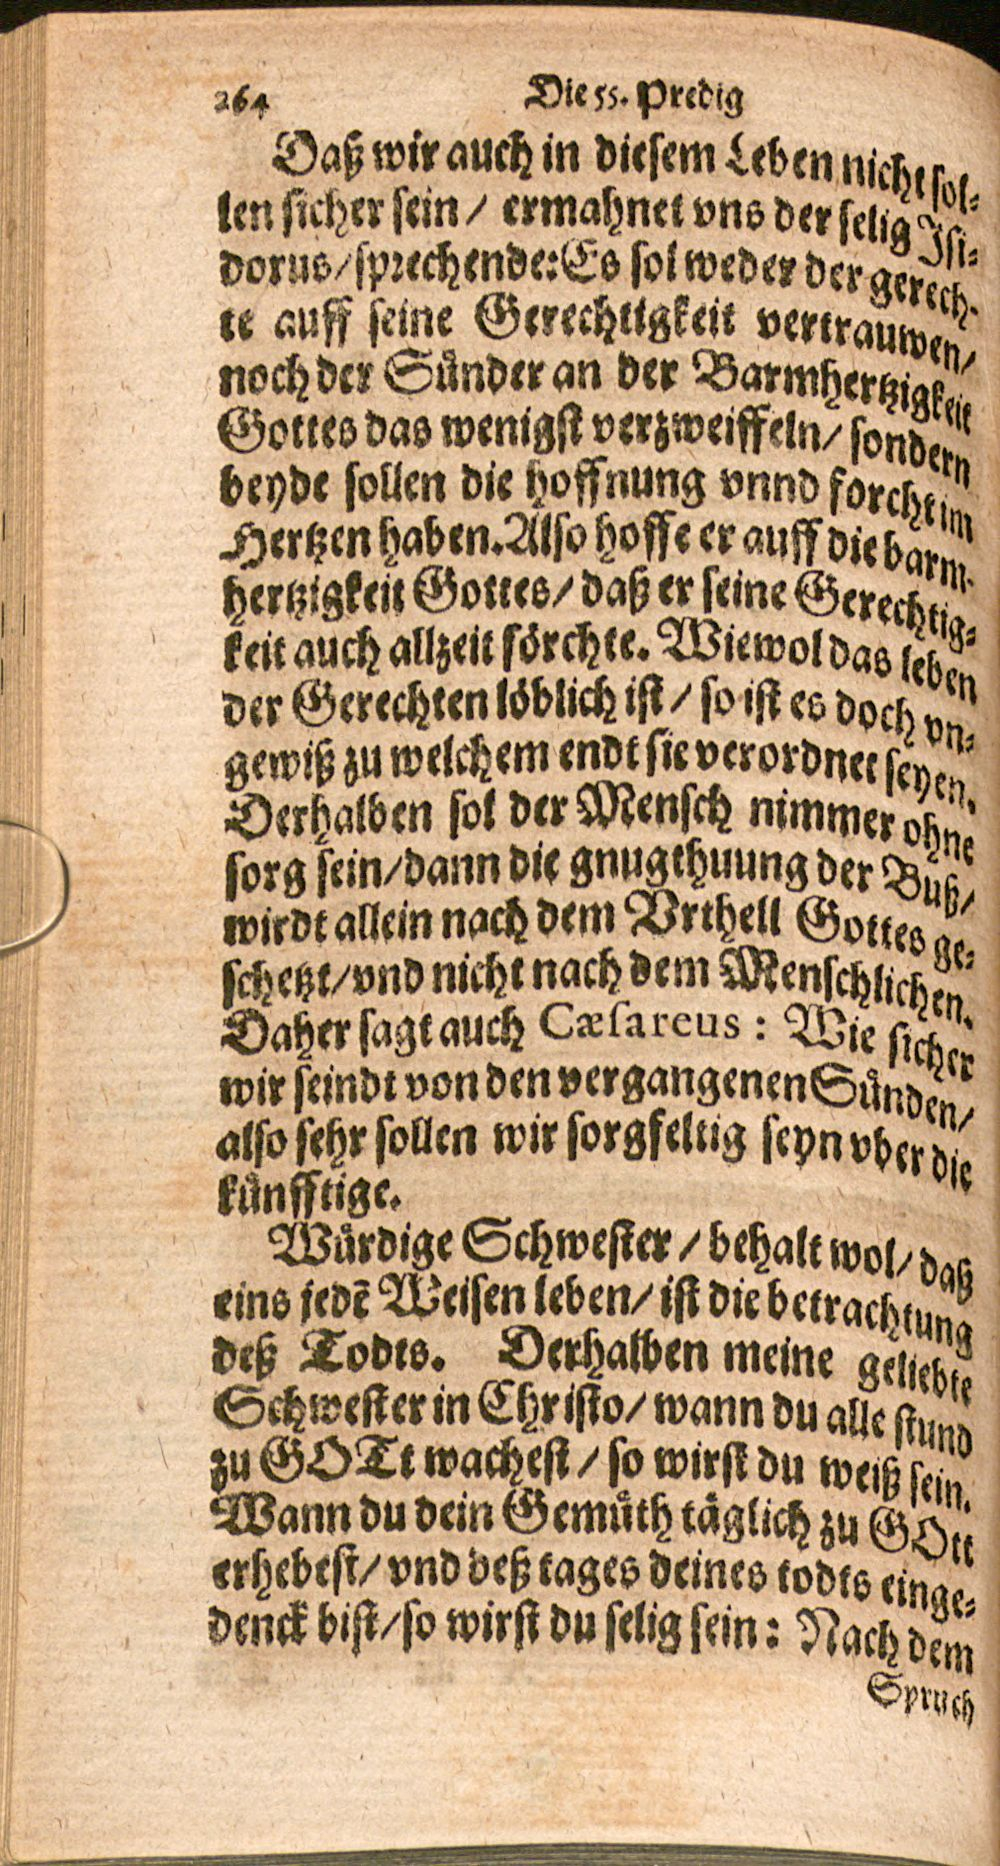 264 Die 55. Predig
Daß wir auch in diesem Leben nicht sol⸗
len sicher sein / ermahnet vns der selig Isi⸗
dorus / sprechende: Es sol weder der gerech⸗
te auff seine Gerechtigkeit vertrauwen /
noch der Sünder an der Barmhertzigkeit
Gottes das wenigst verzweiffeln / sondern
beyde sollen die hoffnung vnnd forcht im
Hertzen haben. Also hoffe er auff die barm⸗
hertzigkeit Gottes / daß er seine Gerechtig⸗
keit auch allzeit förchte. Wiewol das leben
der Gerechten löblich ist / so ist es doch vn⸗
gewiß zu welchem endt sie verordnet seyen.
Derhalben sol der Mensch nimmer ohne
sorg sein / dann die gnugthuung der Buß /
wirdt allein nach dem Vrthell Gottes ge⸗
schetzt / vnd nicht nach dem Menschlichen.
Daher sagt auch Cæsareus : Wie sicher
wir seindt von den vergangenen Sünden /
also sehr sollen wir sorgfeltig seyn vber die
künfftige.
Würdige Schwester / behalt wol / daß
eins jedē Weisen leben / ist die betrachtung
deß Todts. Derhalben meine geliebte
Schwester in Christo / wann du alle stund
zu GOTt wachest / so wirst du weiß sein.
Wann du dein Gemüth täglich zu GOtt
erhebest / vnd deß tages deines todts einge⸗
denck bist / so wirst du selig sein : Nach dem
Spruch